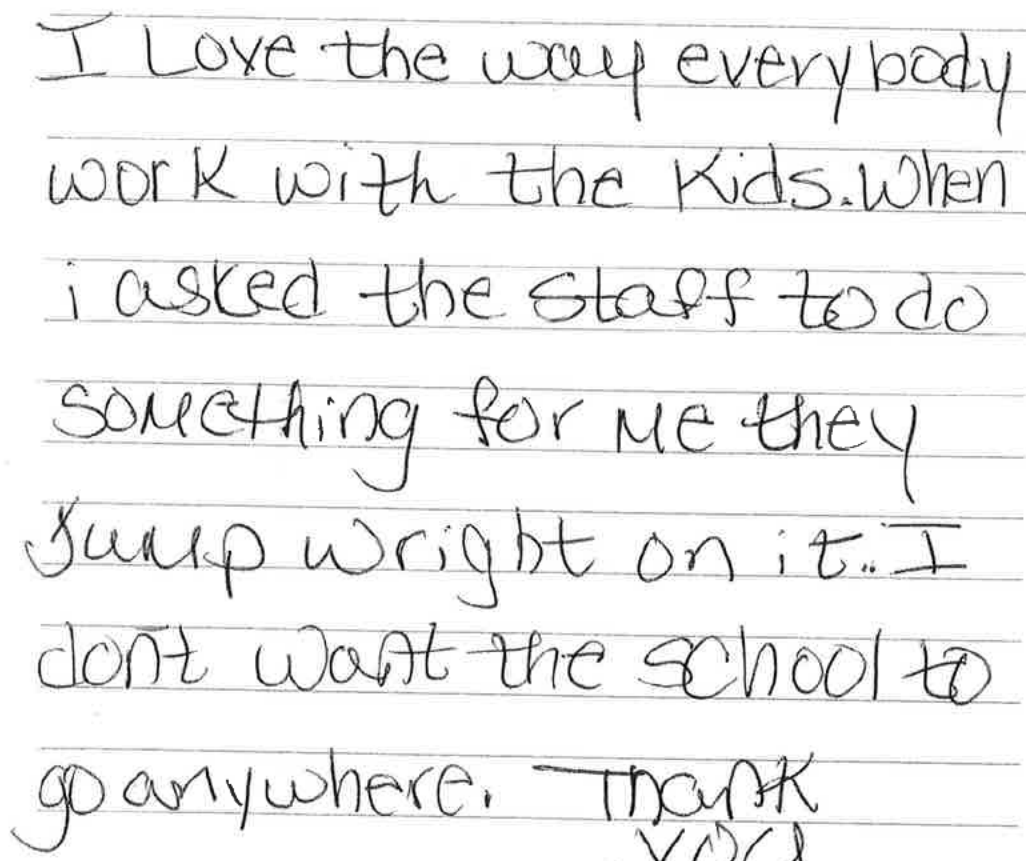 I Love the way everybody
work with the Kids. When
i asked the staff to do
something for me they
Jump wright on it.. I
don't want the school to
go anywhere. Thank
you